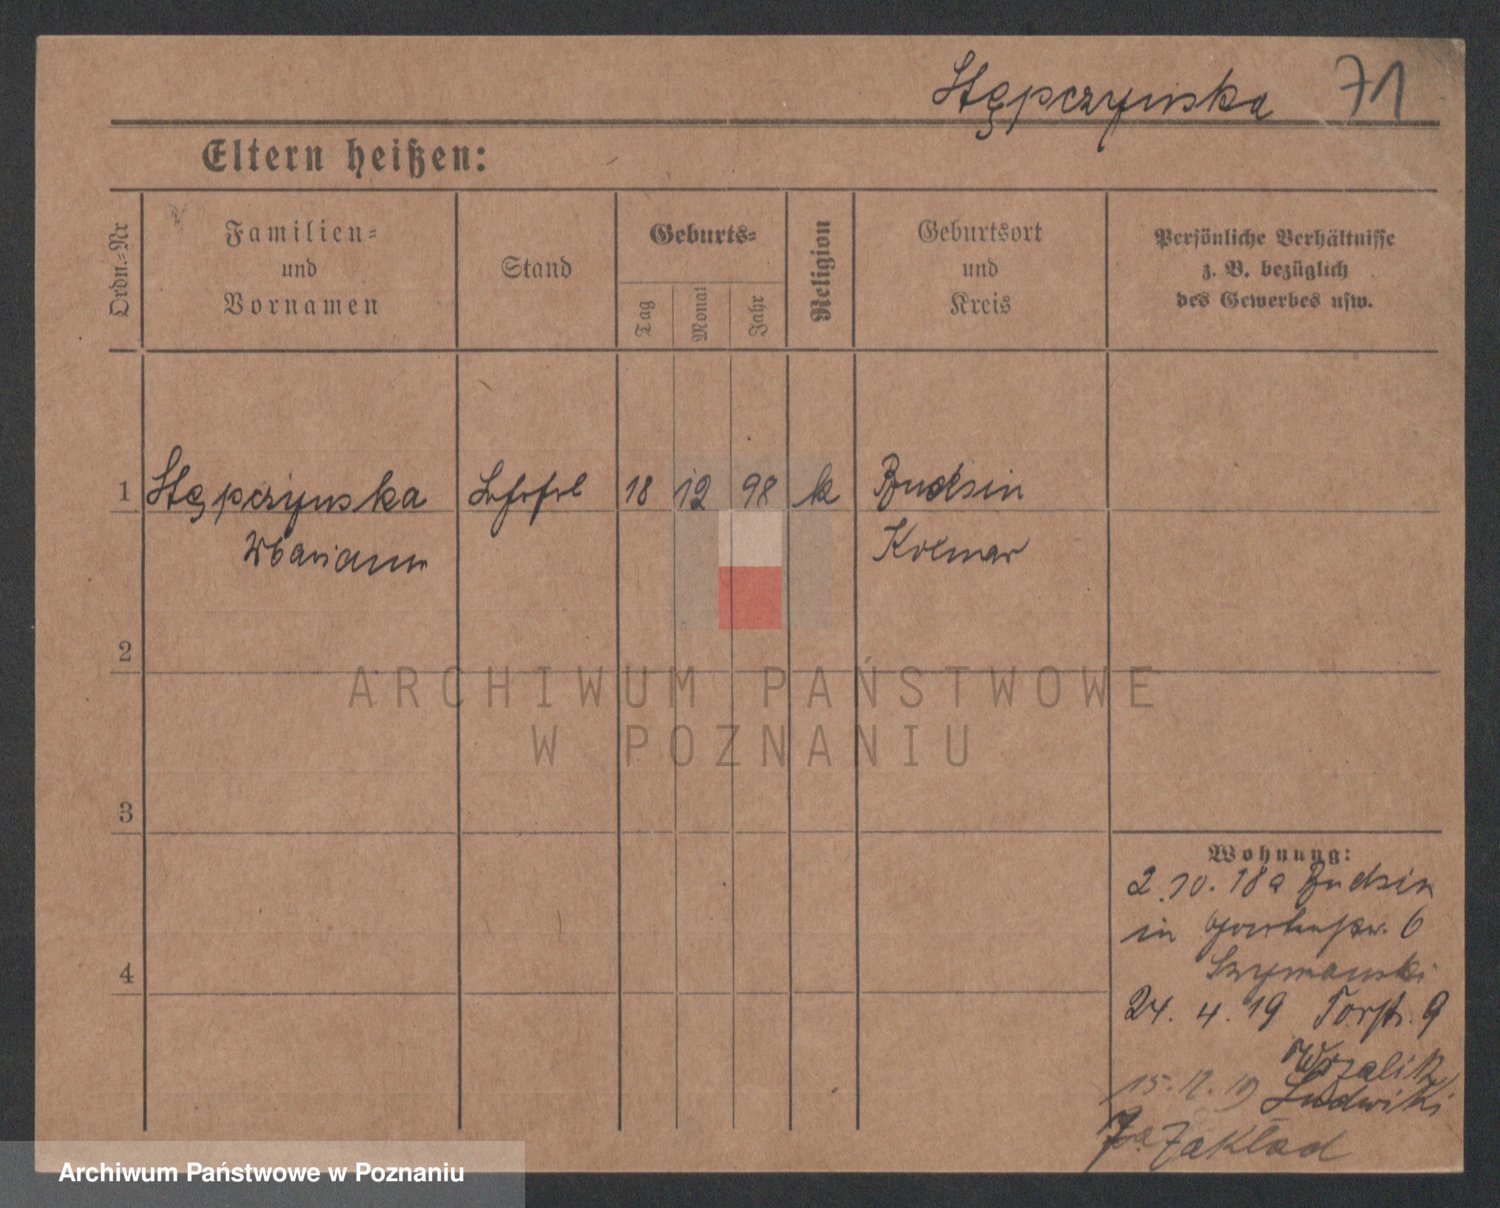 Stępczyńska 71
Eltern heißen:
Ordn.-Nr
Familien-
und
Vornamen
Stand
Geburts-
Tag
Monat
Jahr
Religion
Geburtsort
und
Kreis
Persönliche Verhältnisse
z. B. bezüglich
des Gewerbes usw.
1 Stępczynska 18 12 98 k Budsin
Mariann Kolmar
2
ARCHIWUM PAŃSTWOWE
W POZNANIU
3
4
Wohnung:
2.10.18 a Budsin
in Gartenstr. 6
Szymanski
24. 4. 19 Torstr. 9
Ludwiki
Zakład
Archiwum Państwowe w Poznaniu